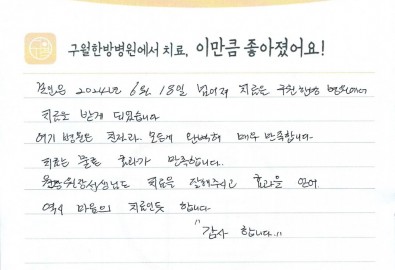 구월한방병원에서 치료, 이만큼 좋아졌어요!
본인은 2024년 6월 18일 넘어져 치료를 구월한방 병원에서
치료를 받게 되었습니다
여기 병원은 모든게 완벽히 매우 만족합니다.
치료는 물론 효과가 만족합니다.
원장선생님도 치료을 잘해주시고 효과을 얻어
역시 마음의 치료인듯 합니다
"감사 합니다."